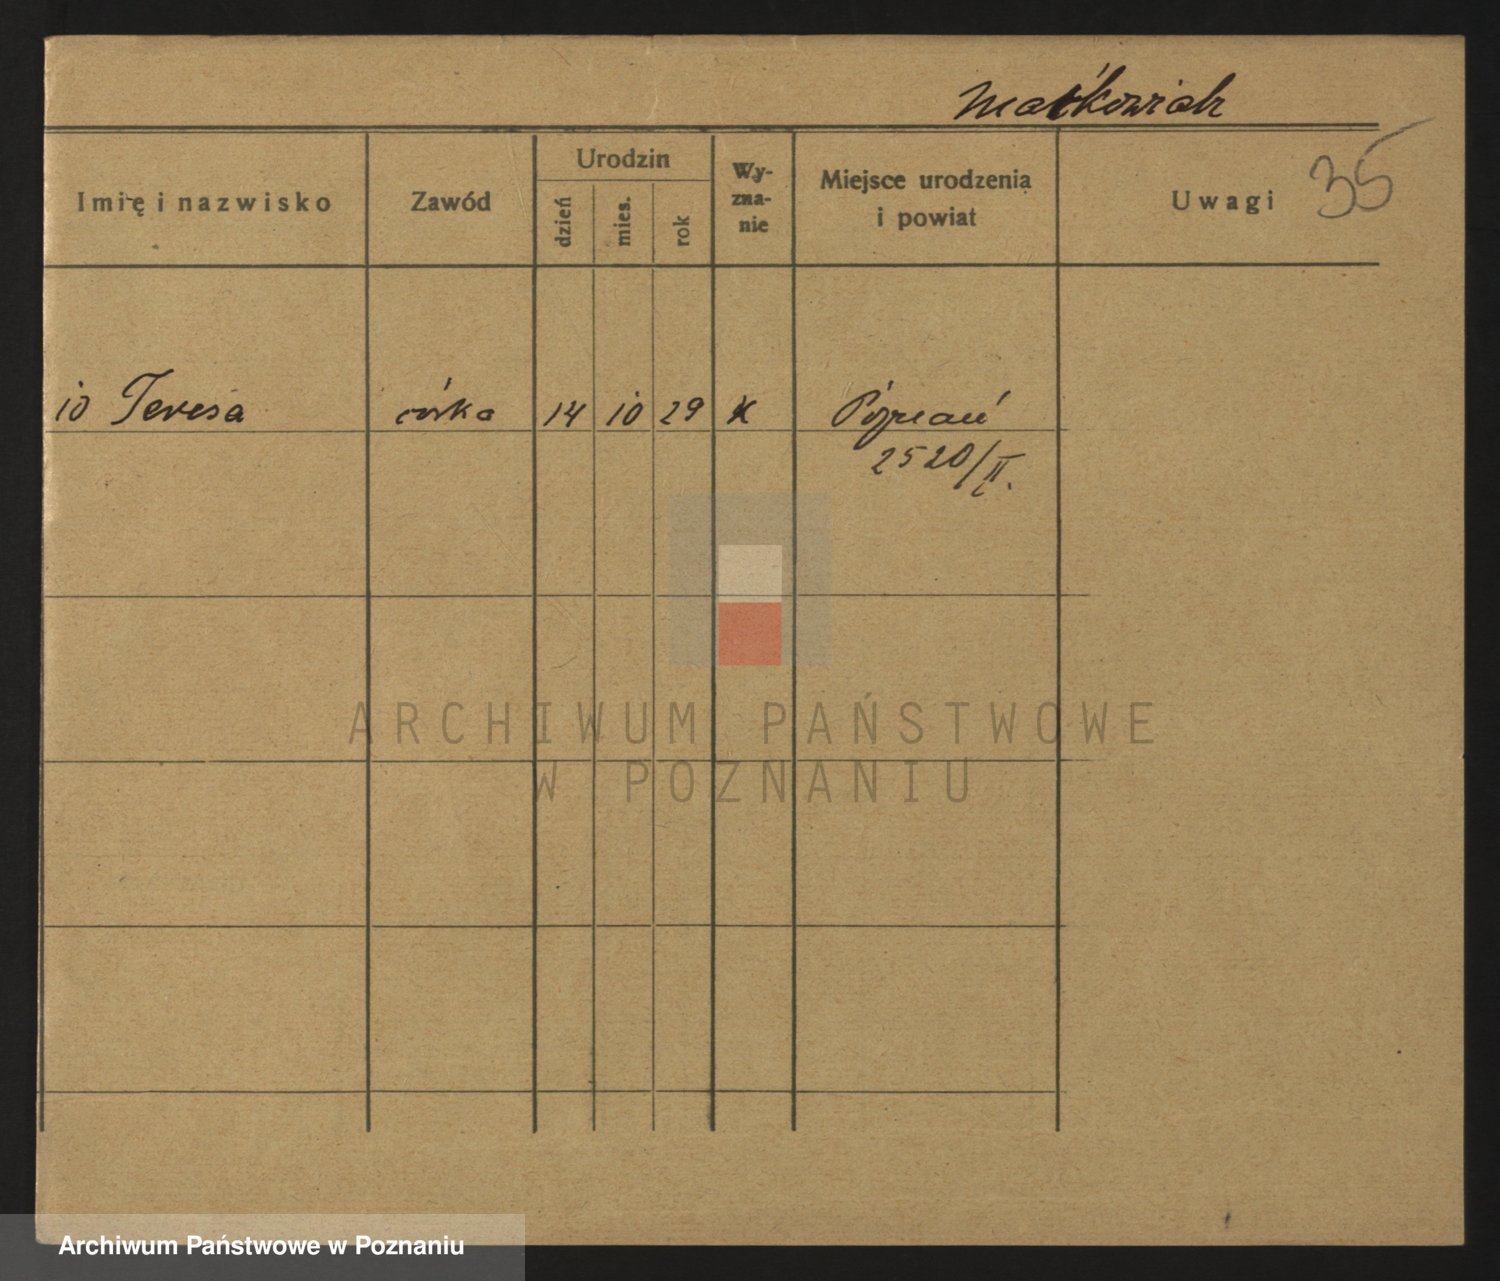 Maćkowiak
35
Imię i nazwisko
Zawód
Urodzin
dzień
mies.
rok
Wy-
zna-
nie
Miejsce urodzenia
i powiat
Uwagi
10 Teresa córka 14 10 29 K Poznań
2520/II.
ARCHIWUM PAŃSTWOWE
W POZNANIU
Archiwum Państwowe w Poznaniu